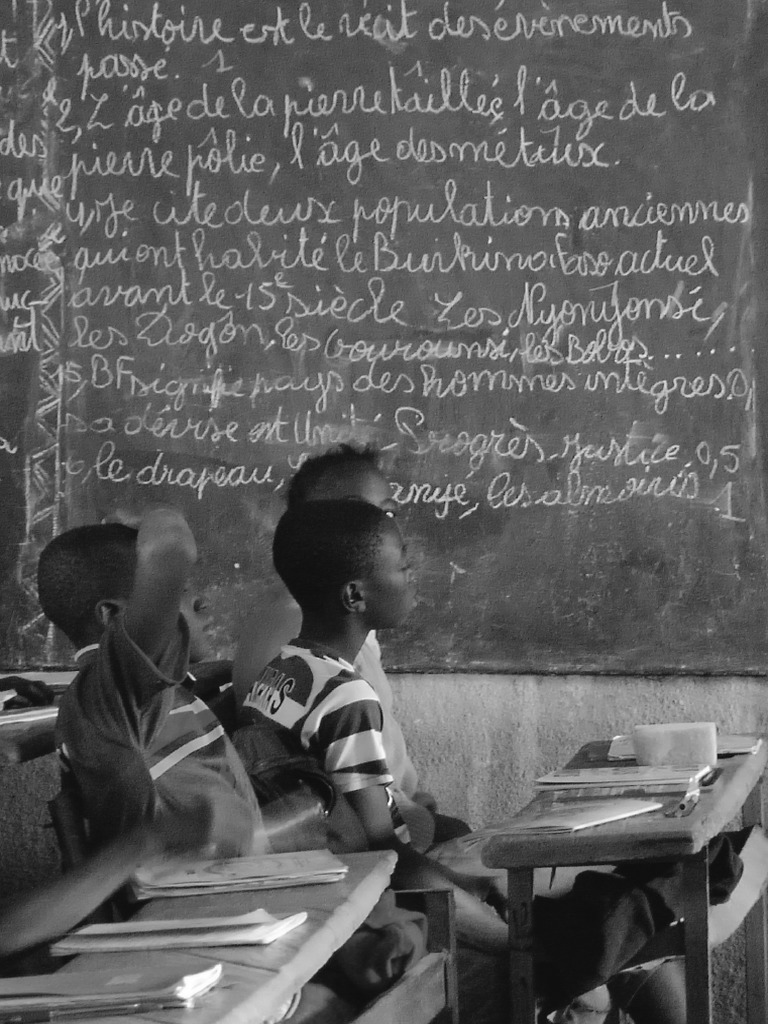 1, l'histoire est le récit des évènements
passé. 1
2, L'âge de la pierre taillée, l'âge de la
pierre pôlie, l'âge des métaux.
4, Je cite deux populations anciennes
qui ont habité le Burkina Faso actuel
avant le 15e siècle Les Nyonyonsé,
les Dogôn, les Gourounsi, les Bobos......
5, BF signifie pays des hommes intègres 0,
sa dévise est Unité Progrès Justice 0,5
6, le drapeau, les almoiris 1
des
que